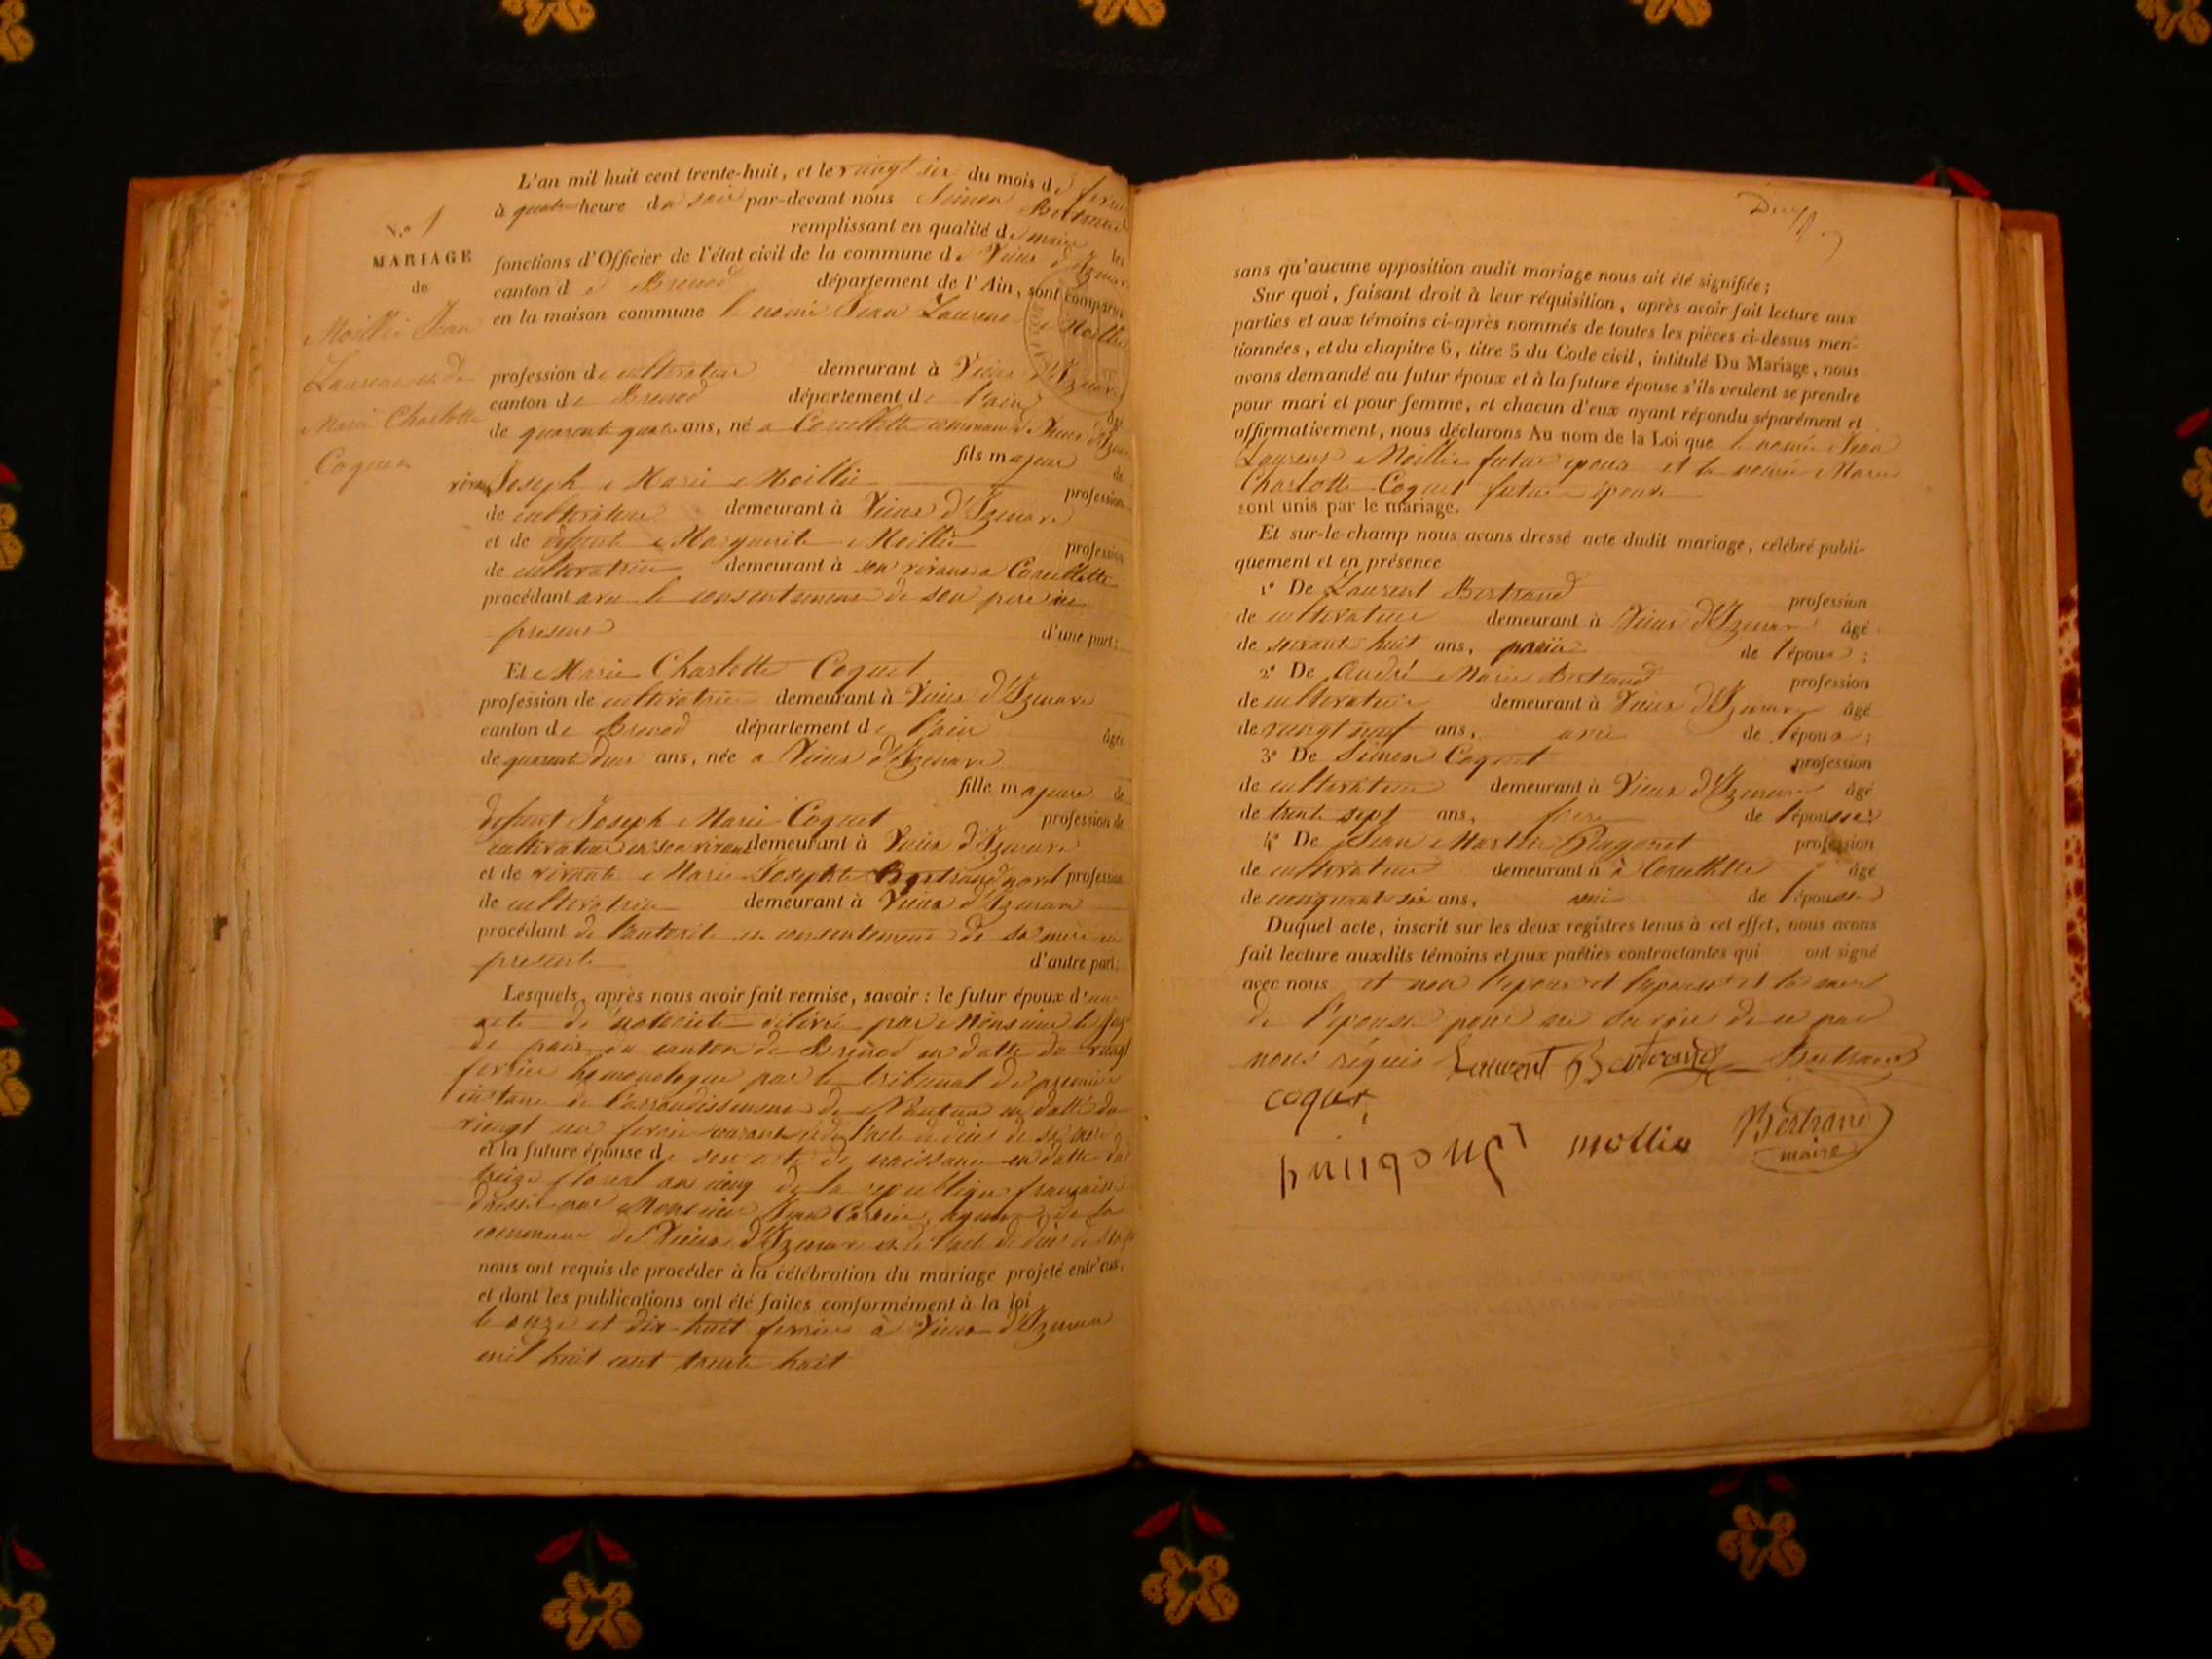 N.º 1
MARIAGE
de
Moillie Jean
Laurent et de
Marie Charlotte
Coquet
L'an mil huit cent trente-huit, et le vingt six du mois de
à quatre heure du soir par-devant nous Simon Bertrand
remplissant en qualité de maire les
fonctions d'Officier de l'état civil de la commune de Vieux d'Izenave
canton de Brenod département de l'Ain, sont comparus
en la maison commune le nomé Jean Laurent Moillie
profession de cultivateur demeurant à Vieux d'Izenave
canton de Brenod département de l'ain âgé
de quarante quatre ans, né a Corcellette commune Vieux d'Izenave
fils majeur de
Joseph Marie Moillie profession
de cultivateur demeurant à Vieux d'Izenave
et de défunte Marguerite Moillie profession
de cultivatrice demeurant à son vivant a Corcellette
procédant avec le consentement de son pere ici
present d'une part;
Et Marie Charlotte Coquet
profession de cultivatrice demeurant à Vieux d'Izenave
canton de Brenod département de l'ain âgée
de quarante deux ans, née a Vieux d'Izenave
fille majeure de
defunt Joseph Marie Coquet profession de
cultivateur en son vivant demeurant à Vieux d'Izenave
et de vivante Marie Josephte Bertrand profession
de cultivatrice demeurant à Vieux d'Izenave
procédant de l'autorité et consentement de sa mère ici
presente d'autre part;
Lesquels, après nous avoir fait remise, savoir : le futur époux d'un
acte de notoriété délivré par Monsieur le juge
de paix du canton de Brenod en datte du vingt
fevrier homonologue par le tribunal de premiere
instance de l'arrondissement de Nantua en datte du
vingt un fevrier courant et de l'acte de déces de sa mere
et la future épouse de son acte de naissance en datte du
treize floreal an cinq de la republique française
dressé par Monsieur Jean agent de la
commune de Vieux d'Izenave et de l'acte de déces de son
nous ont requis de procéder à la célébration du mariage projeté entr'eux,
et dont les publications ont été faites conformément à la loi
le onze et dix-huit fevrier à Vieux d'Izenave
mil huit cent trente huit
sans qu'aucune opposition audit mariage nous ait été signifiée;
Sur quoi, faisant droit à leur réquisition, après avoir fait lecture aux
parties et aux témoins ci-après nommés de toutes les pièces ci-dessus men-
tionnées, et du chapitre 6, titre 5 du Code civil, intitulé Du Mariage, nous
avons demandé au futur époux et à la future épouse s'ils veulent se prendre
pour mari et pour femme, et chacun d'eux ayant répondu séparément et
affirmativement, nous déclarons Au nom de la Loi que le nomé Jean
Laurent Moillie futur epoux et la nomée Marie
Charlotte Coquet future épouse
sont unis par le mariage.
Et sur-le-champ nous avons dressé acte dudit mariage, célébré publi-
quement et en présence
1º De Laurent Bertrand profession
de cultivateur demeurant à Vieux d'Izenave âgé
de soixante huit ans, de l'époux;
2º De André Marie Bertrand profession
de cultivateur demeurant à Vieux d'Izenave âgé
de vingt neuf ans, ami de l'époux;
3º De Simon Coquet profession
de cultivateur demeurant à Vieux d'Izenave âgé
de trente sept ans, frere de l'épouse;
4º De Jean Marthe profession
de cultivateur demeurant à à Corcellette âgé
de cinquante six ans, ami de l'épouse
Duquel acte, inscrit sur les deux registres tenus à cet effet, nous avons
fait lecture auxdits témoins et aux parties contractantes qui ont signé
avec nous et non l'epoux et l'epouse et la mere
de l'epouse pour ne savoir de ce par
nous réquis Laurent Bertrand Bertrand
coquet
mollie Bertrand
maire